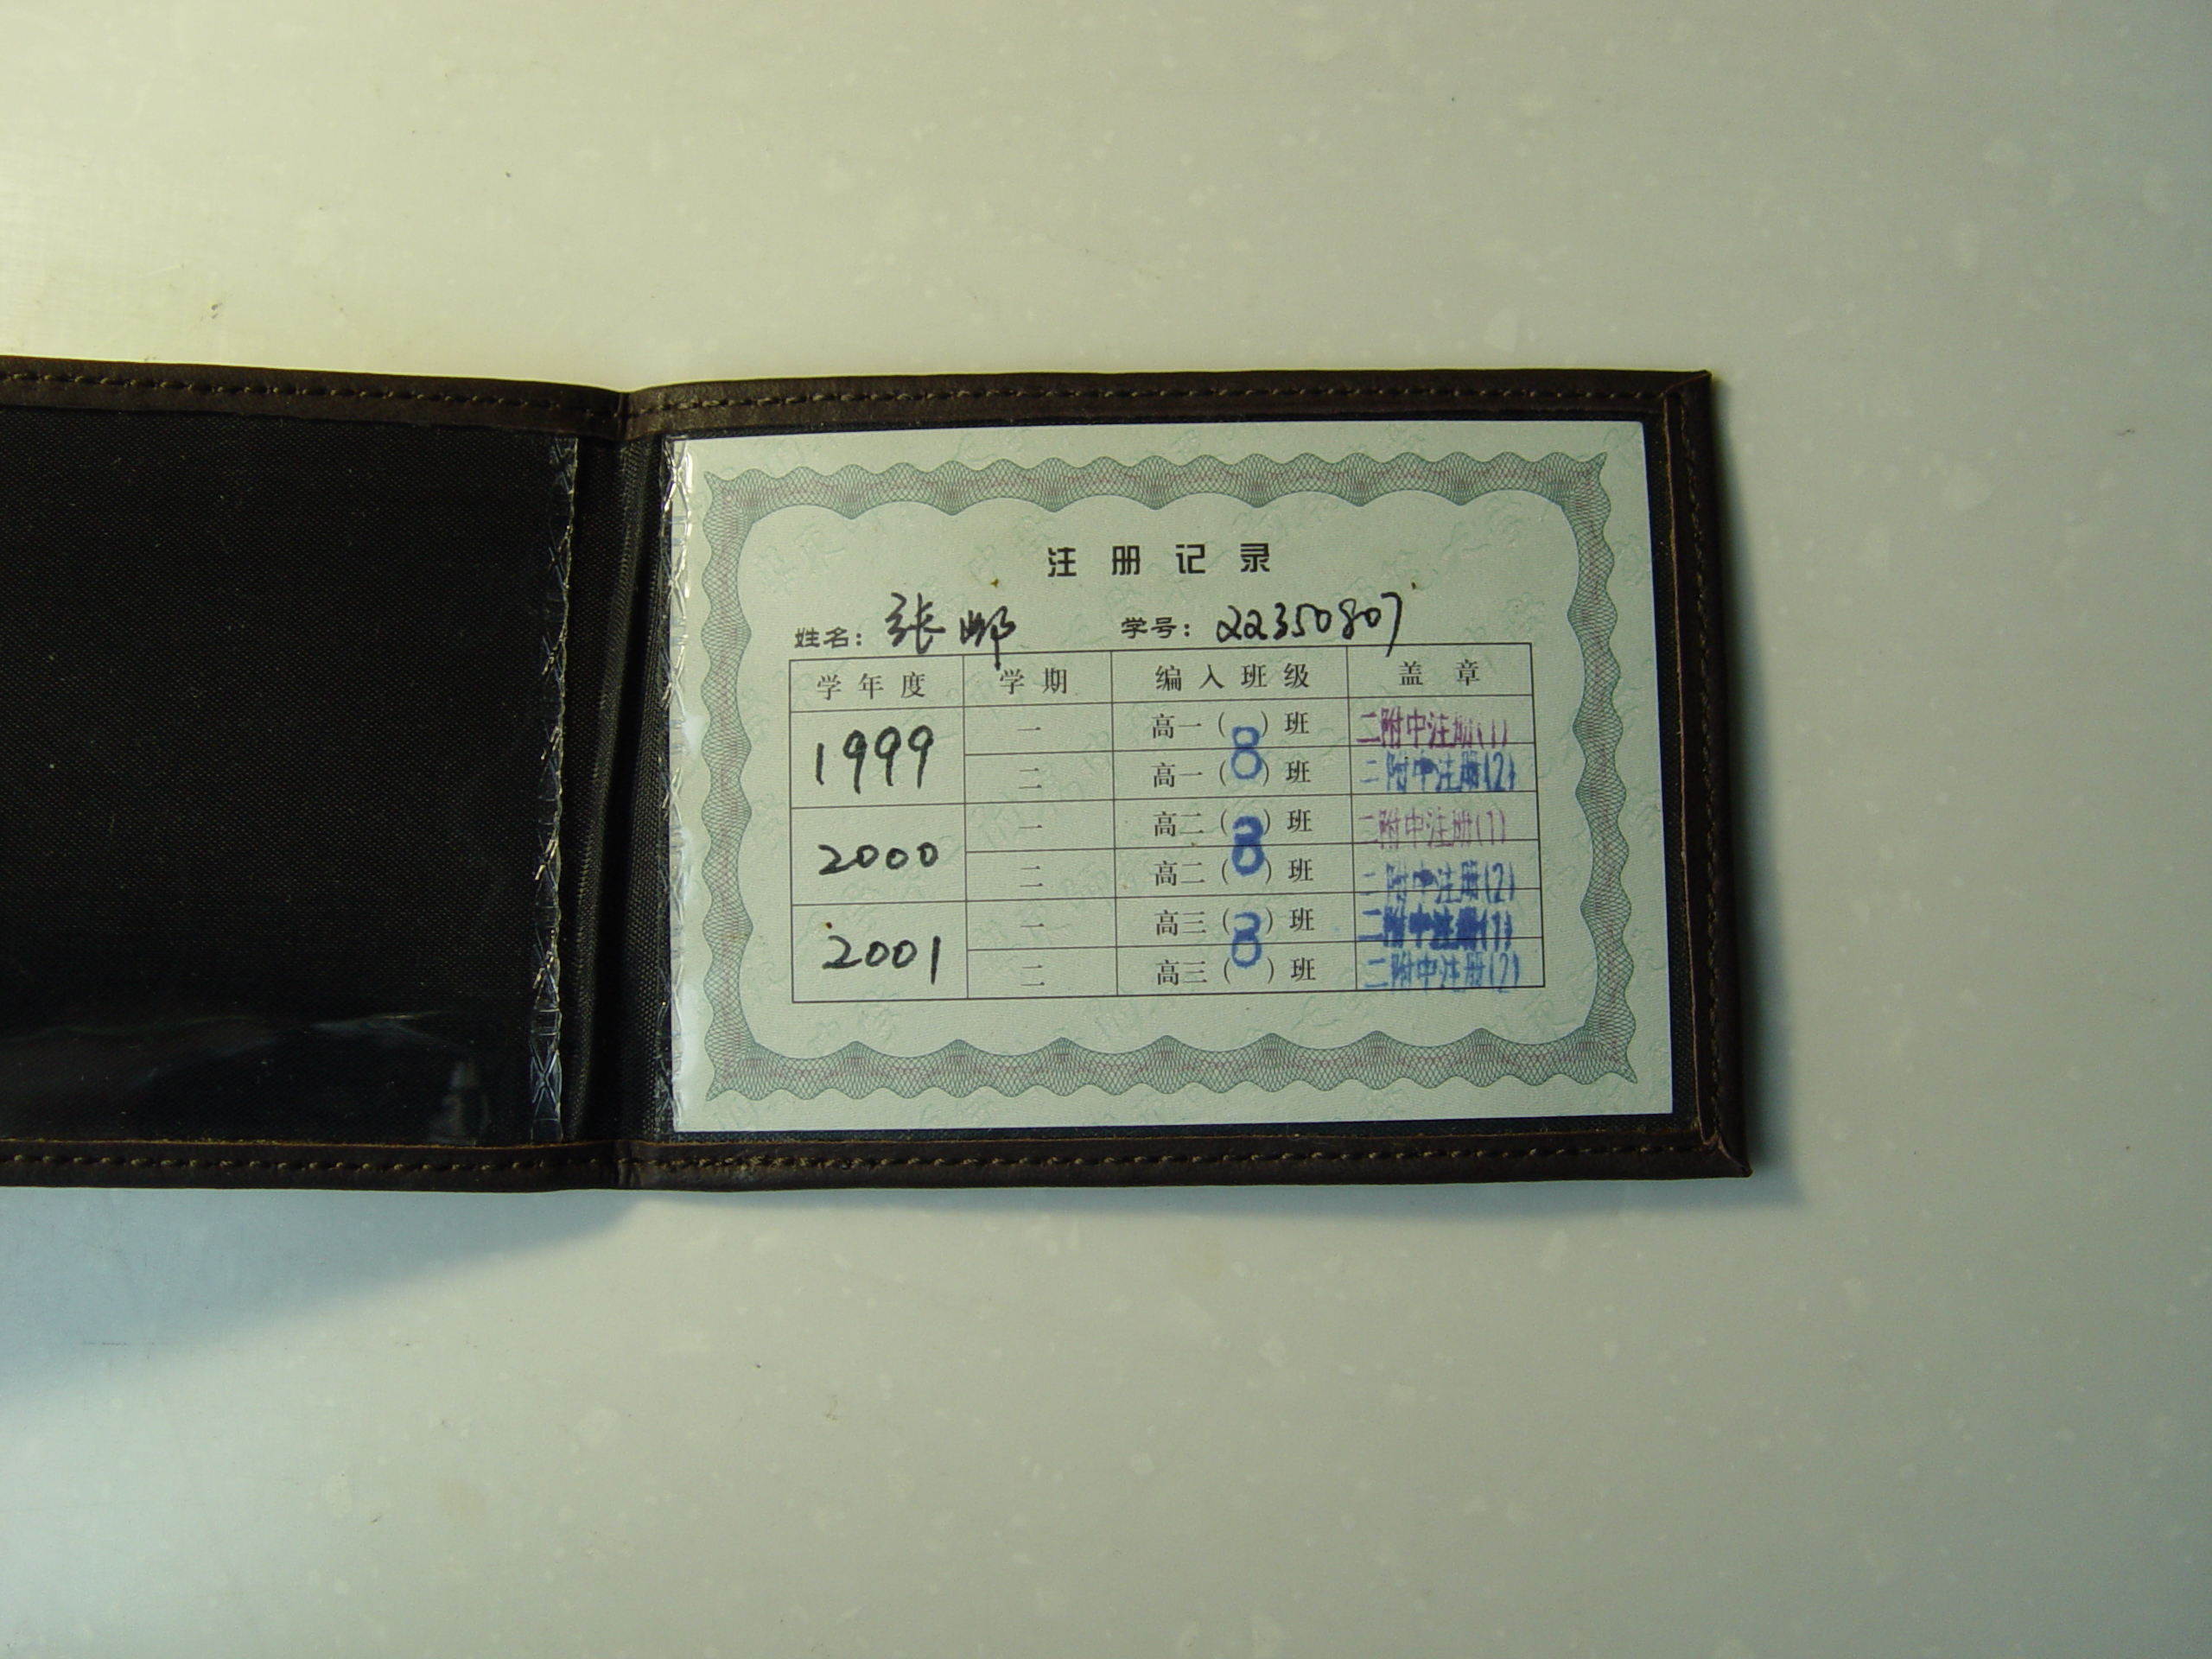 注册记录
姓名：张邮 学号：22350807
学年度 学期 编入班级 盖章
1999 一 高一（8）班 二附中注册(1)
二 高一（ ）班 二附中注册(2)
2000 一 高二（8）班 二附中注册(1)
二 高二（ ）班 二附中注册(2)
2001 一 高三（8）班 二附中注册(1)
二 高三（ ）班 二附中注册(2)